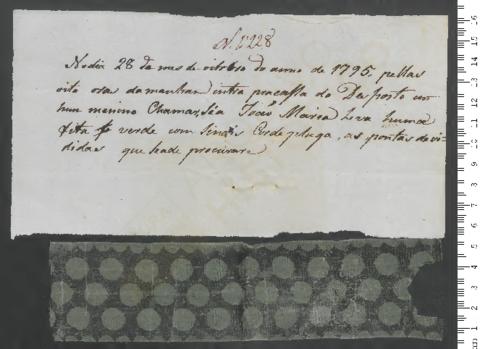 N. 1228
No dia 28 do mes de oitobro do anno de 1795, pellas
oito ora da manhan intra pra caza do Desposto um
hum menino Chamasséa João Maria Leva huma
fita verde com sinais Cor de pluga, as pontas devi-
didas que hade procurare